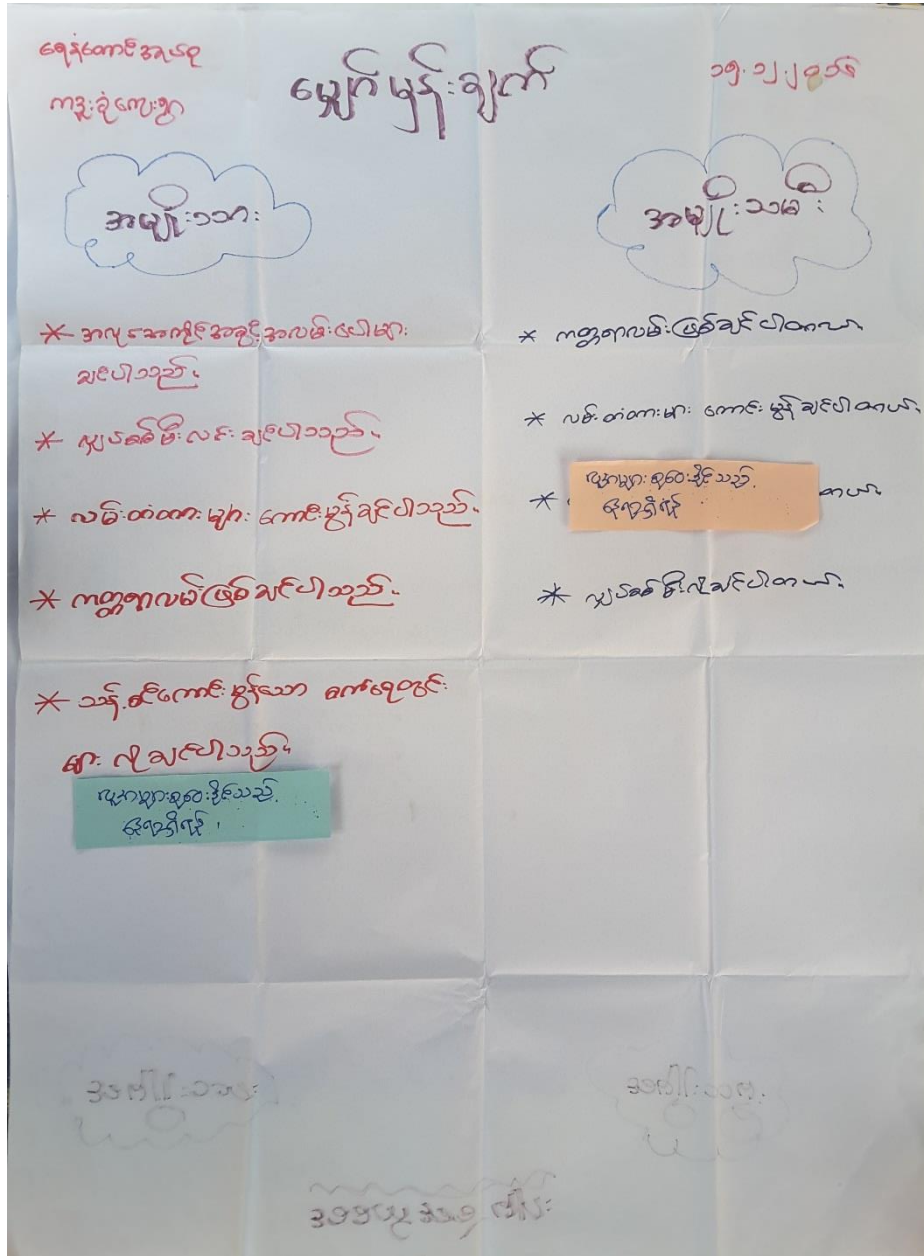 ရေနံတောင်အုပ်စု
ကဒူးစုံကျေးရွာ
မျှော်မှန်းချက်
အမျိုးသား
* အလုပ်အကိုင်အခွင့်အလမ်းပေါများ
ချင်ပါသည်။
* လျှပ်စစ်မီးလင်းချင်ပါသည်။
* လမ်းတံတားများ ကောင်းမွန်ချင်ပါသည်။
* ကတ္တရာလမ်းဖြစ်ချင်ပါသည်။
* သန့်စင်ကောင်းမွန်သော စက်ရေတွင်း
များ လိုချင်ပါသည်။
လူအများစုဝေးနိုင်သည့်
နေရာရှိရန်
အမျိုးသမီး
* ကတ္တရာလမ်းဖြစ်ချင်ပါတယ်။
* လမ်းတံတားများ ကောင်းမွန်ချင်ပါတယ်။
လူအများစုဝေးနိုင်သည့်
နေရာရှိရန်
* တယ်။
* လျှပ်စစ်မီးလိုချင်ပါတယ်။